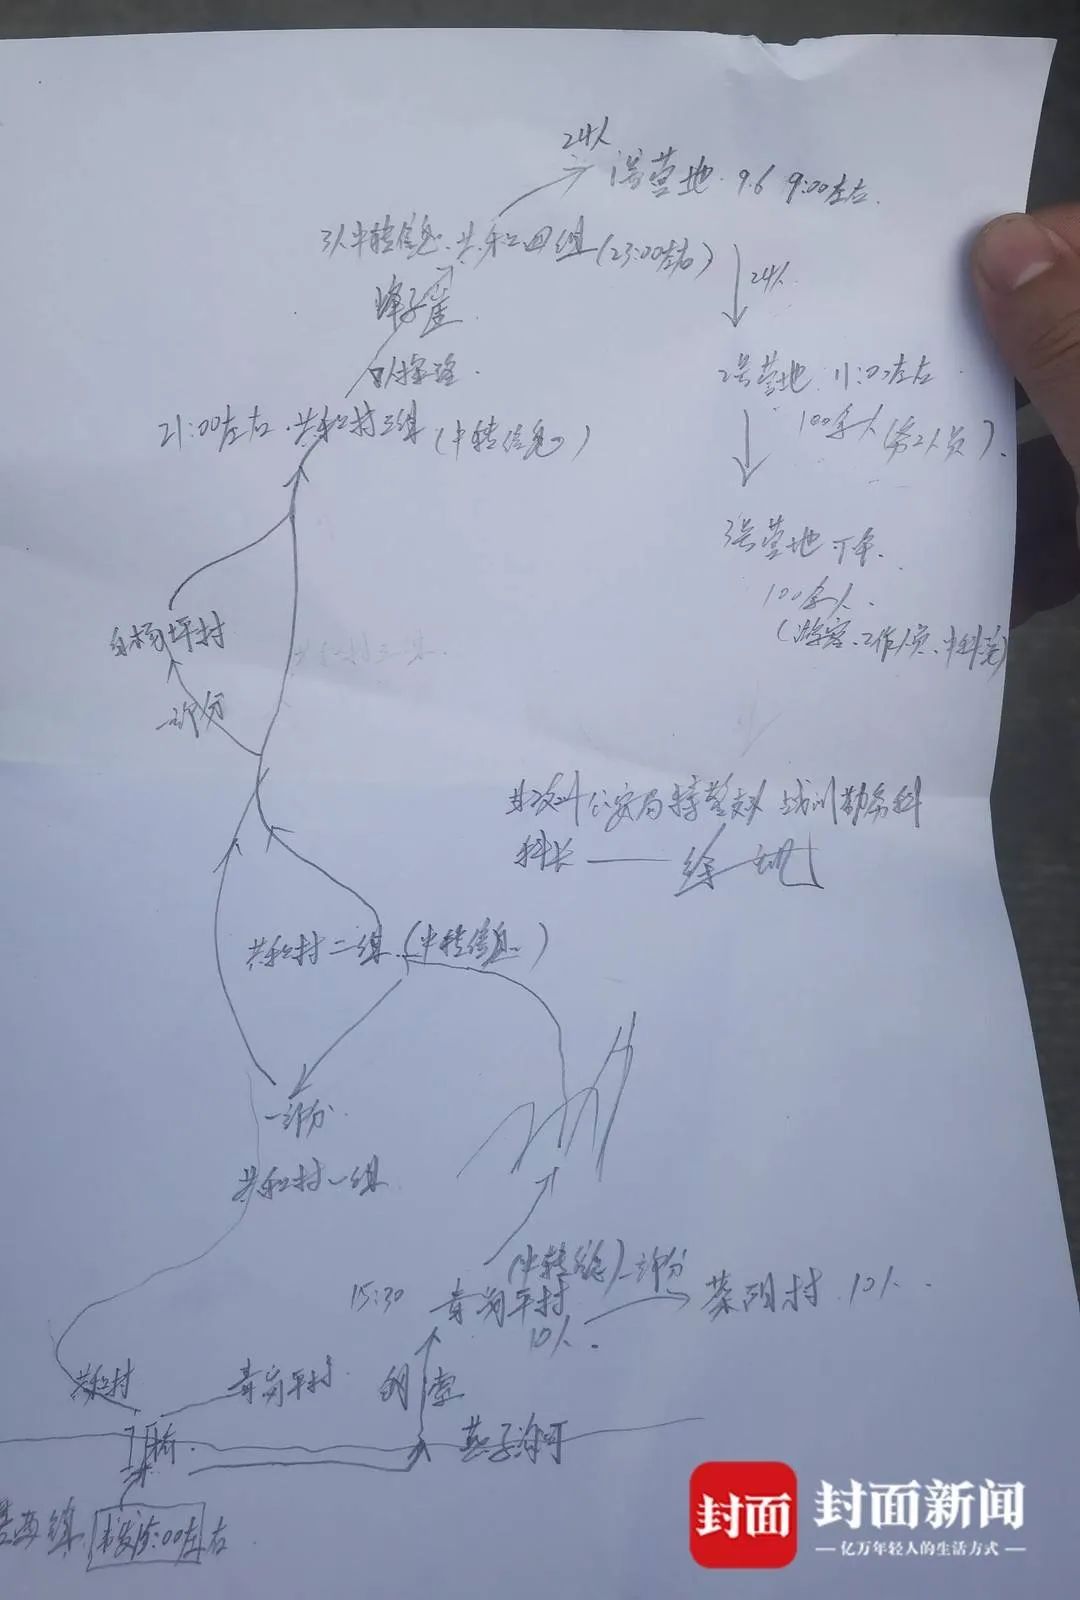 24人
1号营地. 9.6 9:00左右.
3人中转信息. 共和四组(23:00左右)
24人
蜂子崖.
2号营地 11:00左右
探路.
100余人(务工人员).
21:00左右. 共和村三组(中转信息)
3号营地 下午.
100余人.
(游客、工作人员、中科院)
白杨坪村
共和村三组.
一部分
甘孜州公安局特警支队 战训勤务科
科长——徐
共和村二组.(中转信息.)
一部分.
共和村一组.
(中转信息)一部分
15:30 青岗坪村 菜阳村. 10人.
10人.
共和村 青岗坪村.
桥. 燕子沟河
镇. 出发 :00左右.
封面 封面新闻
— 亿万年轻人的生活方式 —